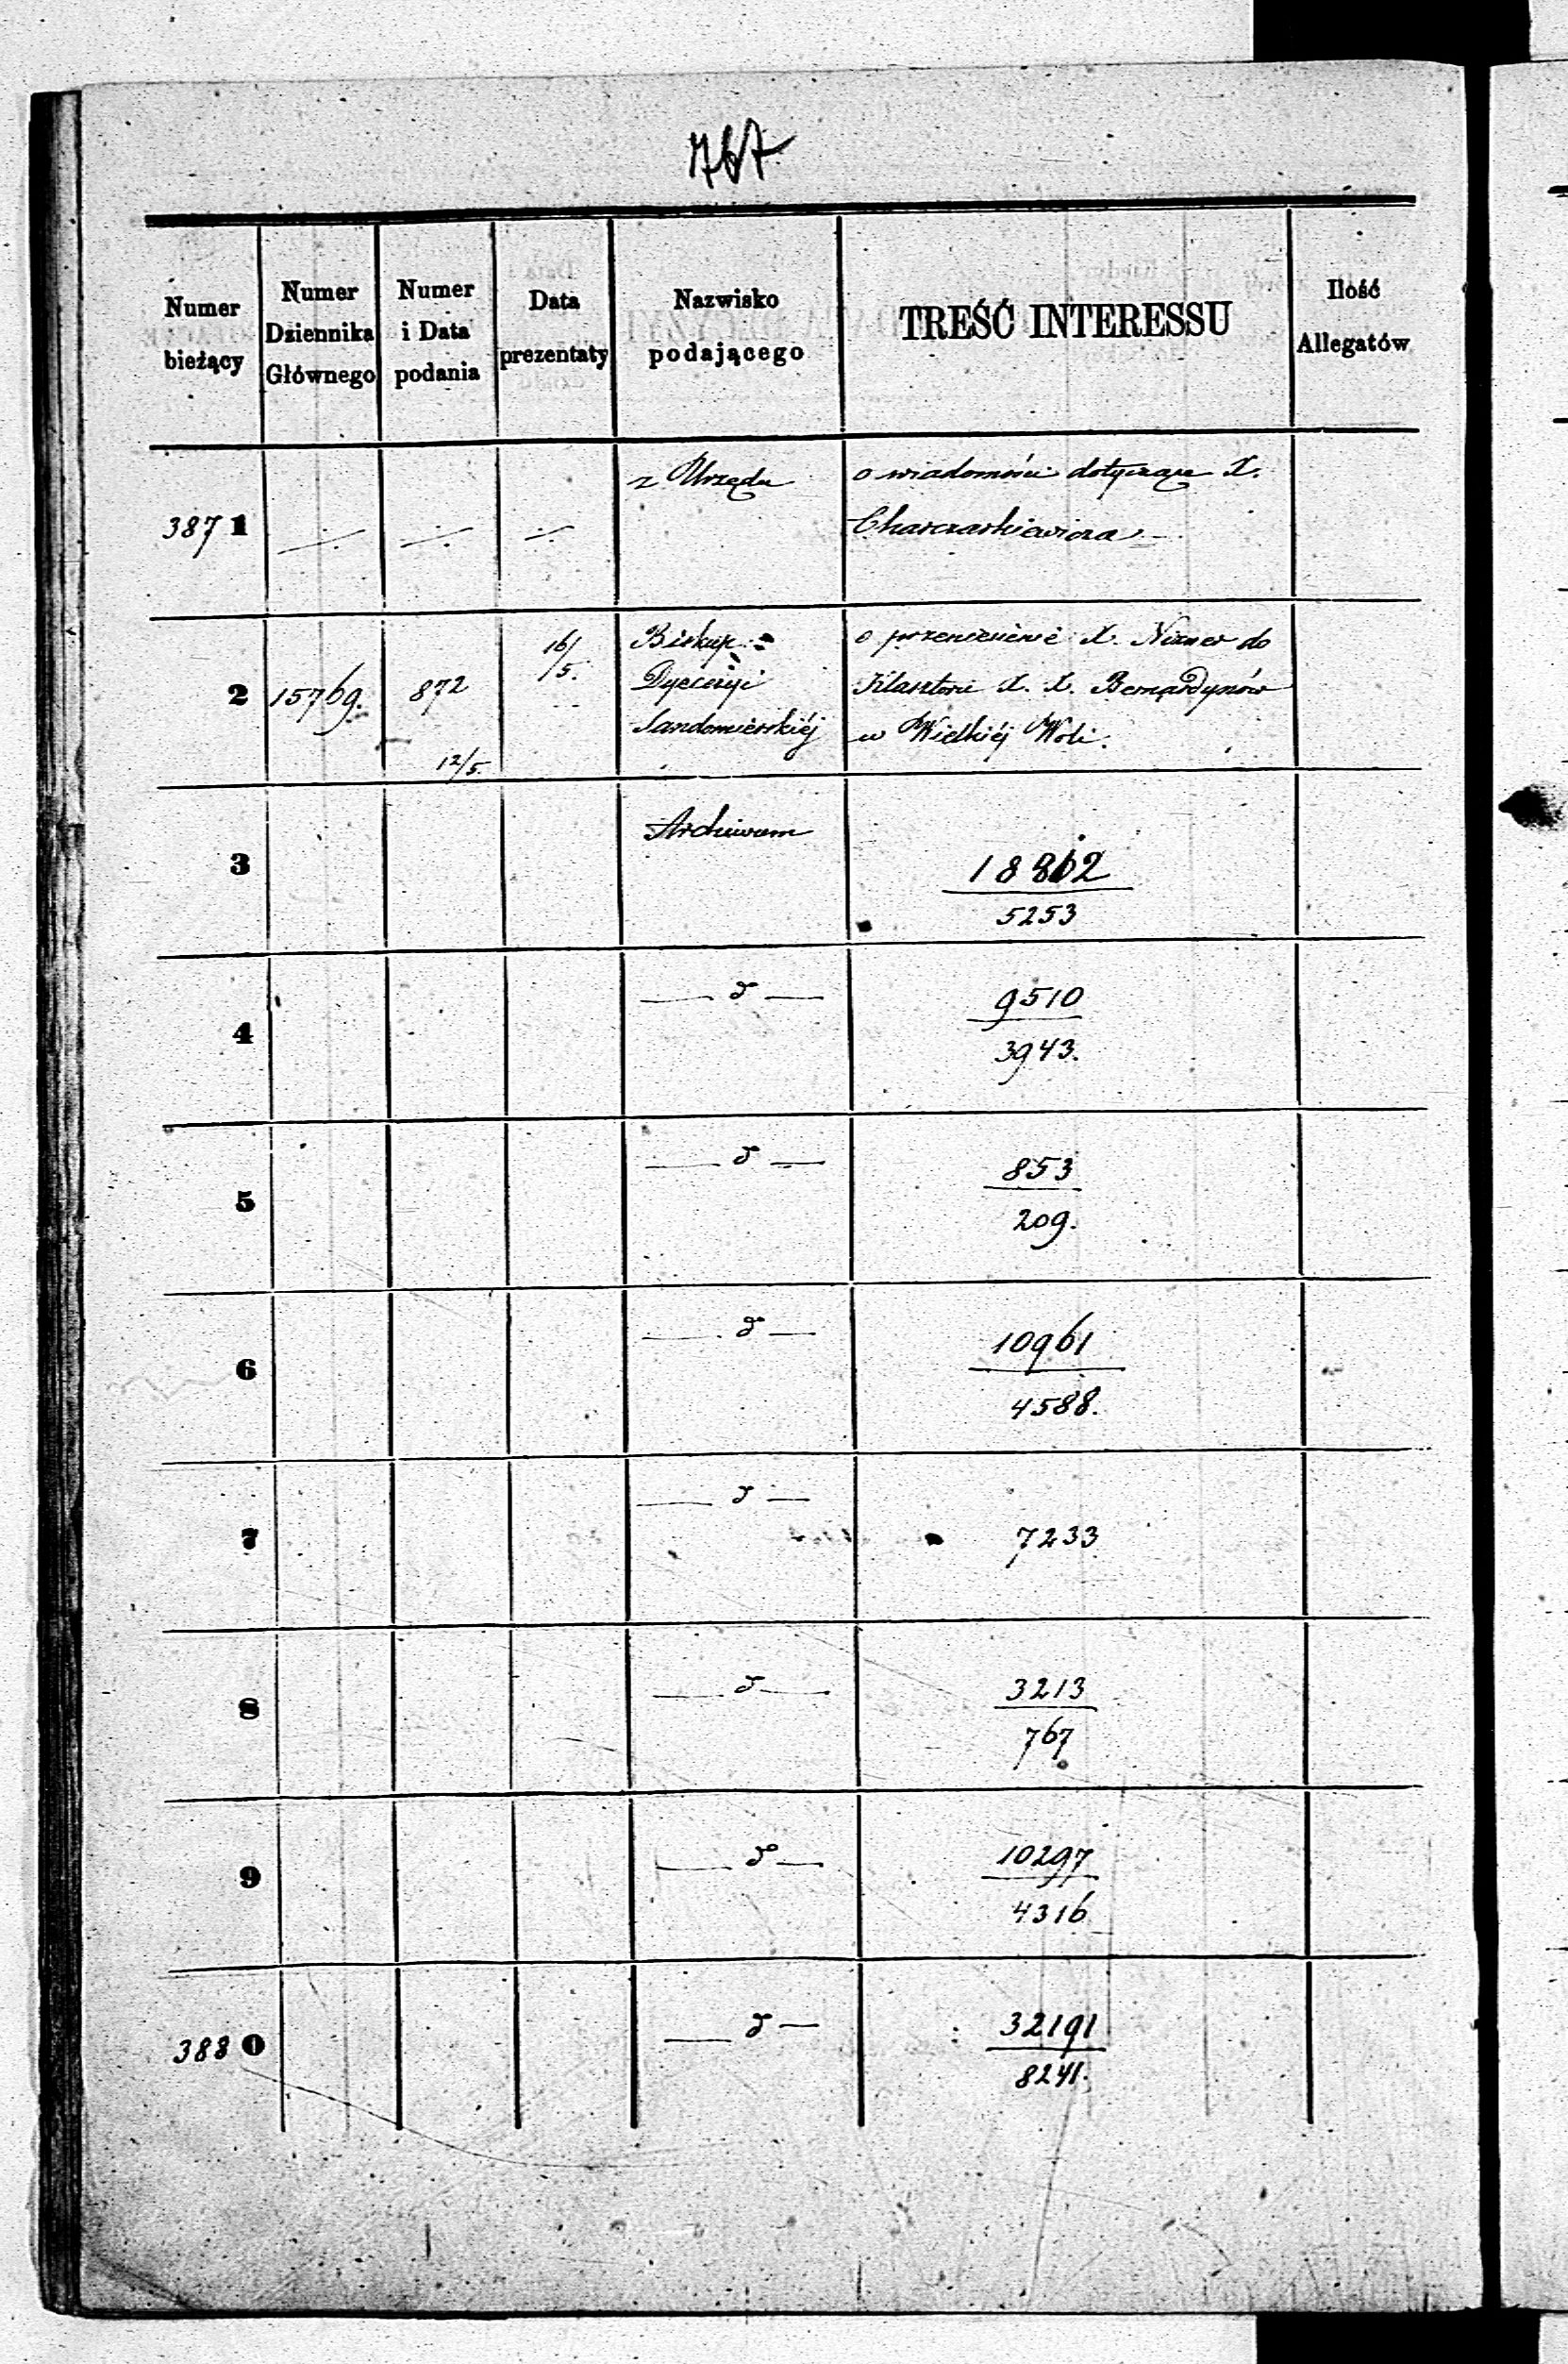 767
Numer bieżący
Numer Dziennika Głównego
Numer i Data podania
Data prezentaty
Nazwisko podającego
TREŚĆ INTERESSU
Ilość Allegatów
387 1
z Urzędu
o wiadomości dotyczące X.
2
15769.
872
12/5.
16/5.
Biskup
Dyecezyi
Sandomierskiéj
o przeniesienie X. do
Klasztoru X. X. Bernardynów
w Wielkiéj Woli.
3
Archiwum
5253
4
— d —
9510
3943.
5
— d —
853
209.
6
— d —
10961
4588.
7
— d —
7233
8
— d —
3213
767
9
— d —
10297
4316
388 0
— d —
32191
8241.